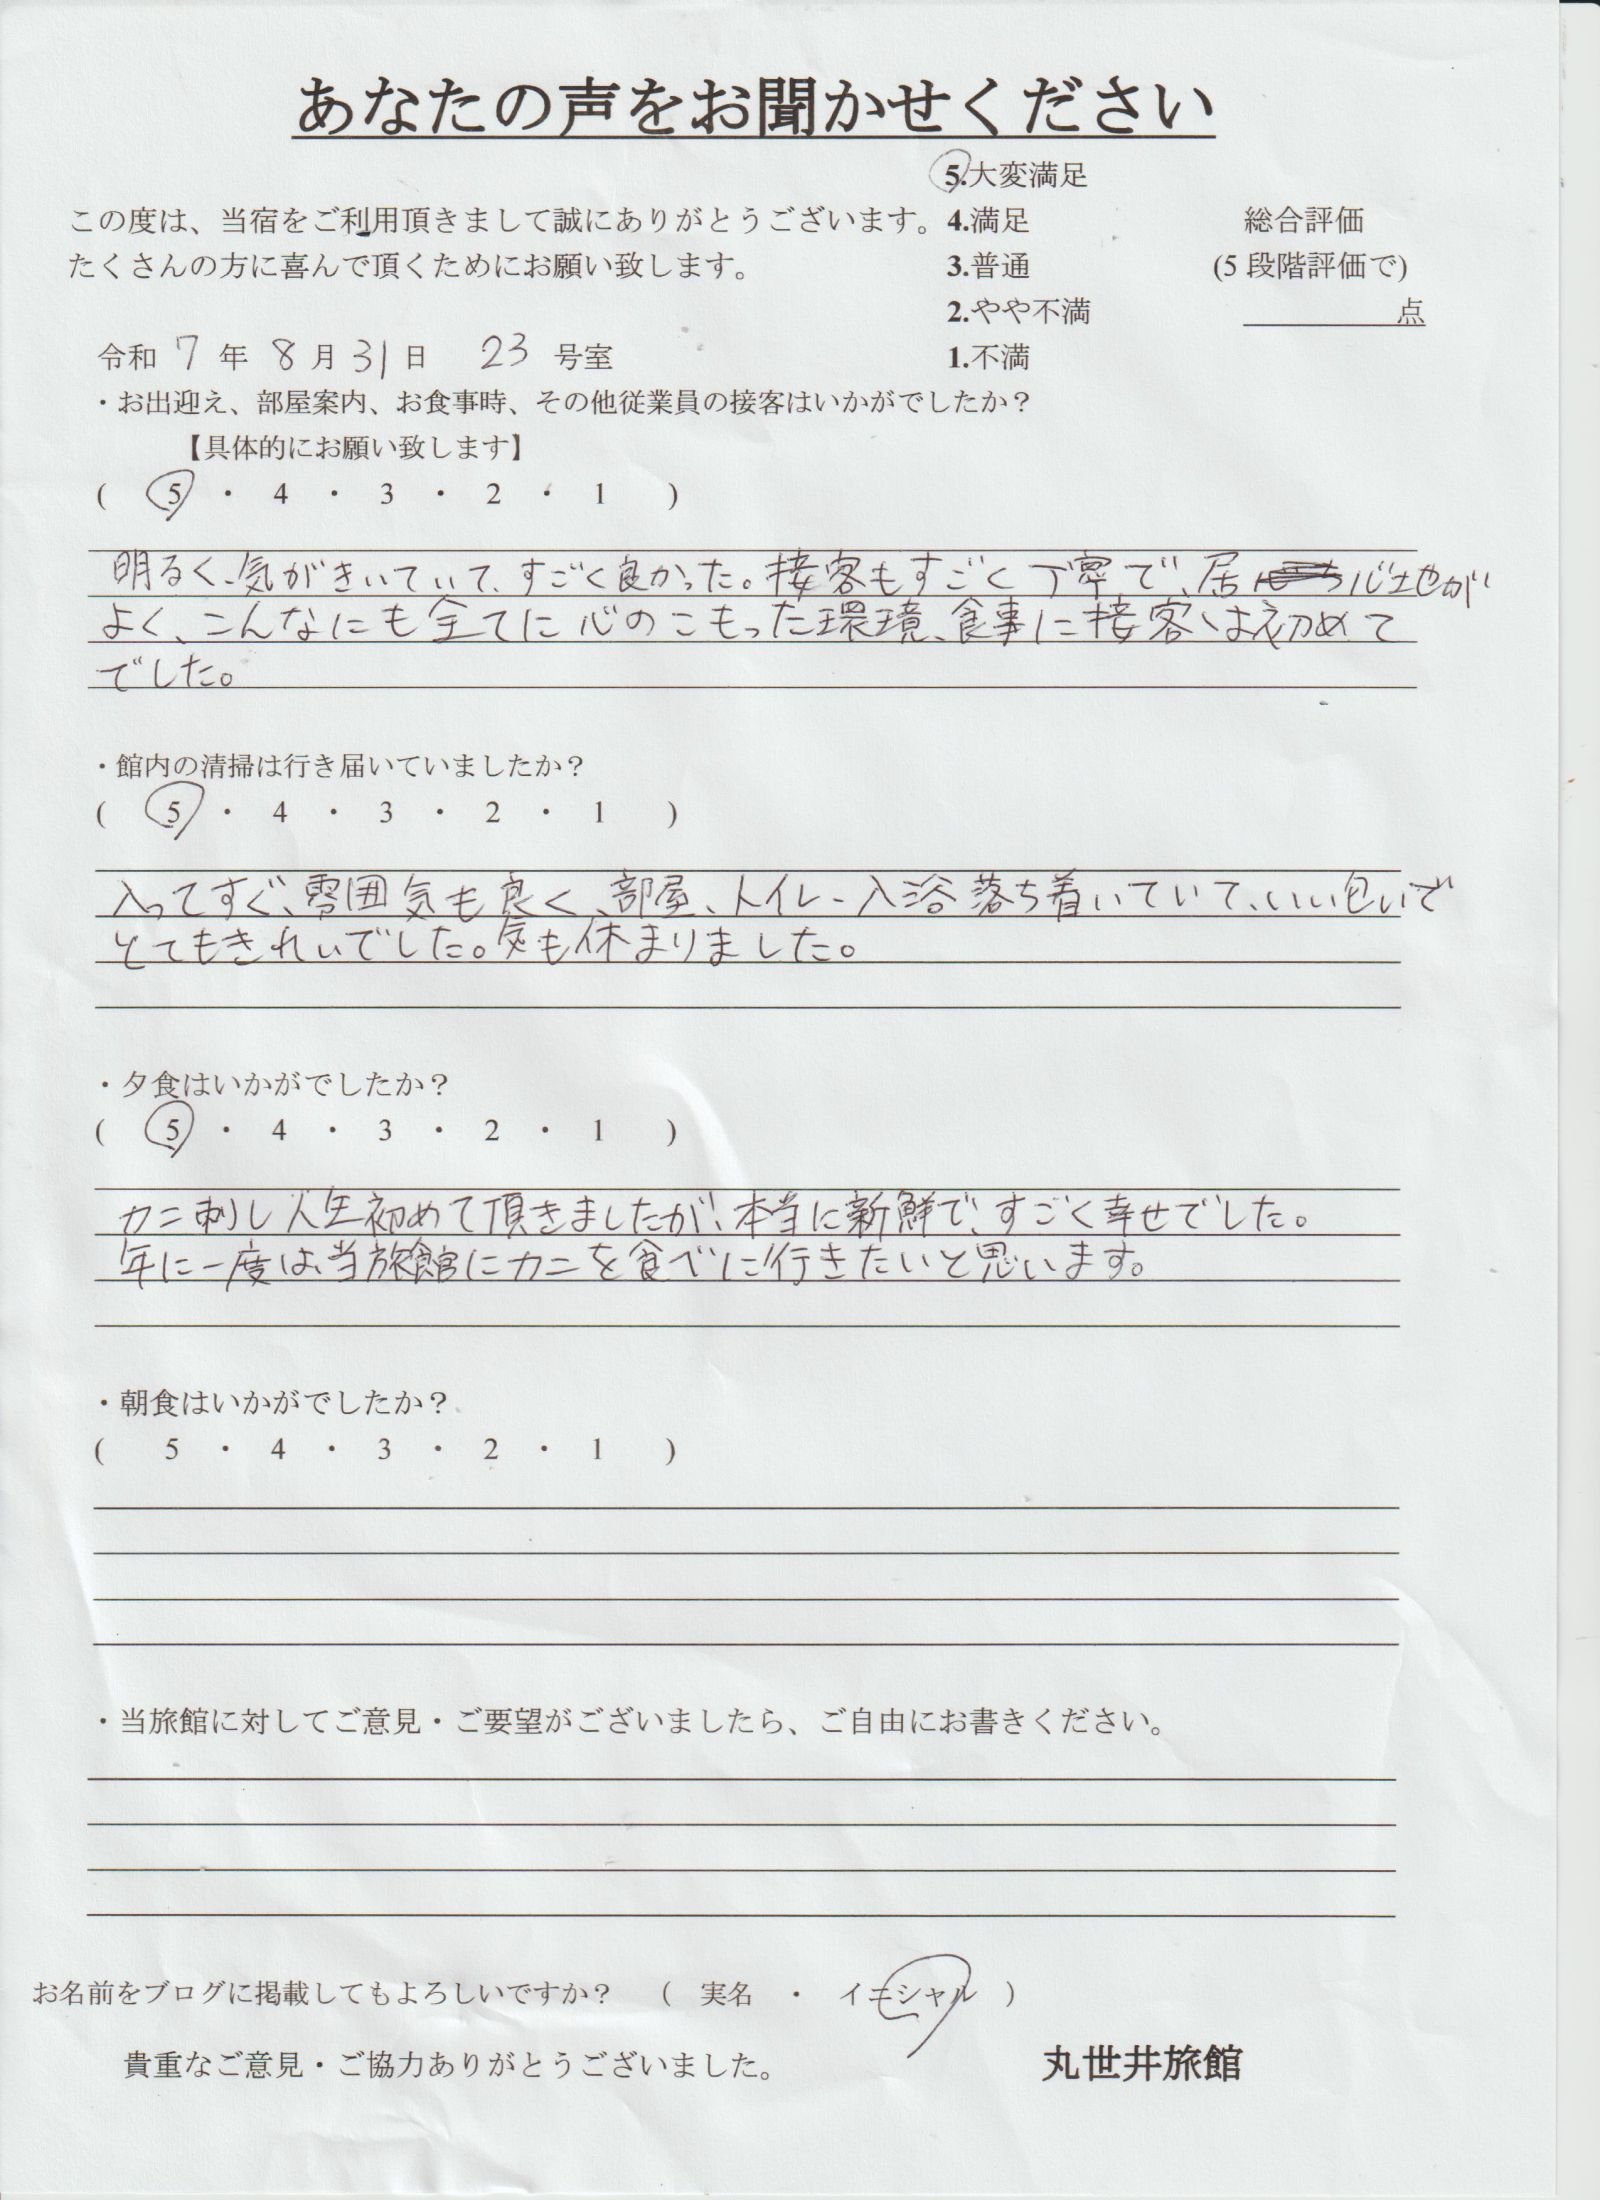 あなたの声をお聞かせください
5.大変満足
この度は、当宿をご利用頂きまして誠にありがとうございます。 4.満足 総合評価
たくさんの方に喜んで頂くためにお願い致します。 3.普通 (5段階評価で)
2.やや不満 点
令和 7 年 8 月 31 日 23 号室 1.不満
・お出迎え、部屋案内、お食事時、その他従業員の接客はいかがでしたか？
【具体的にお願い致します】
( 5 ・ 4 ・ 3 ・ 2 ・ 1 )
明るく、気がきいていて、すごく良かった。接客もすごく丁寧で、居心地が
よく、こんなにも全てに心のこもった環境、食事に接客は初めて
でした。
・館内の清掃は行き届いていましたか？
( 5 ・ 4 ・ 3 ・ 2 ・ 1 )
入ってすぐ、雰囲気も良く、部屋、トイレ、入浴落ち着いていて、いい匂いで
とてもきれいでした。気も休まりました。
・夕食はいかがでしたか？
( 5 ・ 4 ・ 3 ・ 2 ・ 1 )
カニ刺し人生初めて頂きましたが、本当に新鮮で、すごく幸せでした。
年に一度は、当旅館にカニを食べに行きたいと思います。
・朝食はいかがでしたか？
( 5 ・ 4 ・ 3 ・ 2 ・ 1 )
・当旅館に対してご意見・ご要望がございましたら、ご自由にお書きください。
お名前をブログに掲載してもよろしいですか？ ( 実名 ・ イニシャル )
貴重なご意見・ご協力ありがとうございました。 丸世井旅館